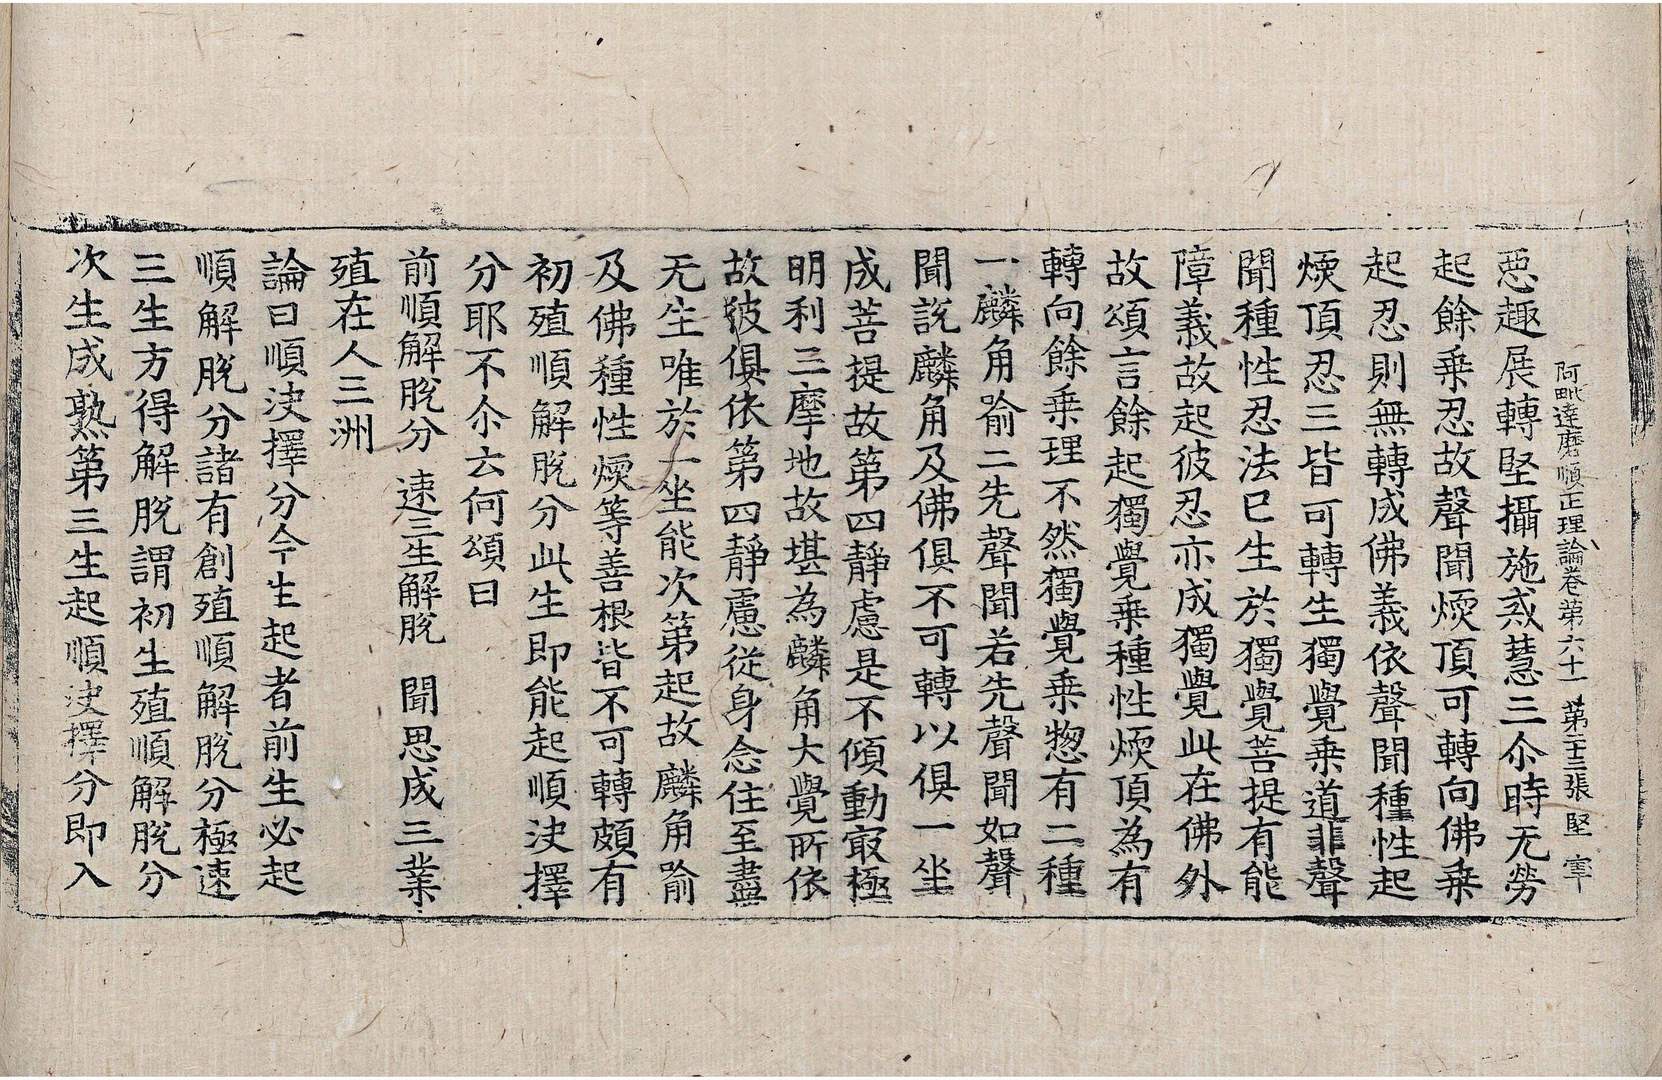 阿毗達磨順正理論卷第六十一 第二十三張 堅
惡趣展轉堅攝施戒慧三尒時无勞
起餘乗忍故聲聞煗頂可轉向佛乗
起忍則無轉成佛義依聲聞種性起
煗頂忍三皆可轉生獨覺乗道非聲
聞種性忍法已生於獨覺菩提有能
障義故起彼忍亦成獨覺此在佛外
故頌言餘起獨覺乗種性煗頂為有
轉向餘乗理不然獨覺乗惣有二種
一麟角喻二先聲聞若先聲聞如聲
聞說麟角及佛俱不可轉以俱一坐
成菩提故第四靜慮是不傾動㝡極
明利三摩地故堪為麟角大覺所依
故彼俱依第四靜慮従身念住至盡
无生唯於一坐能次第起故麟角喻
及佛種性煗等善根皆不可轉頗有
初殖順解脫分此生即能起順決擇
分耶不尒云何頌曰
前順解脫分 速三生解脫 聞思成三業
殖在人三洲
論曰順決擇分今生起者前生必起
順解脫分諸有創殖順解脫分極速
三生方得解脫謂初生殖順解脫分
次生成熟第三生起順決擇分即入